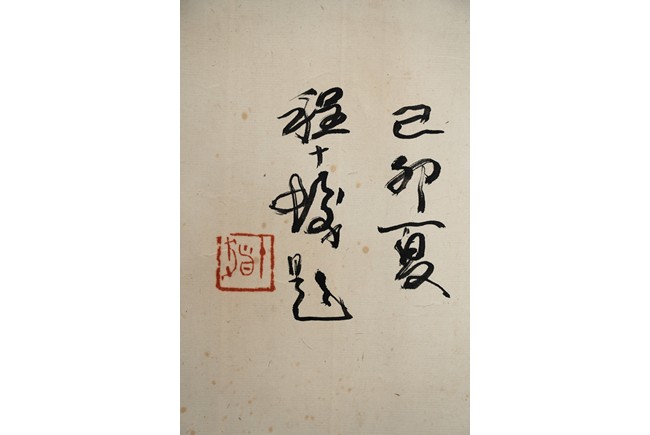 己卯夏
程十髮題